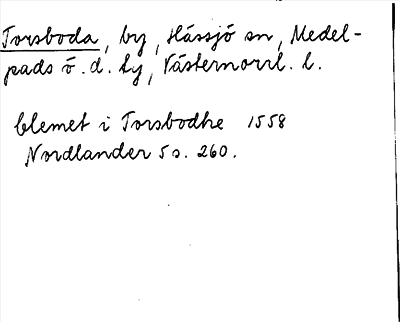 Torsboda, by, Hässjö sn, Medel-
pads ö. d. ty, Västernorrl. l.
Clemet i Torsbodhe 1558
Nordlander 5 s. 260.